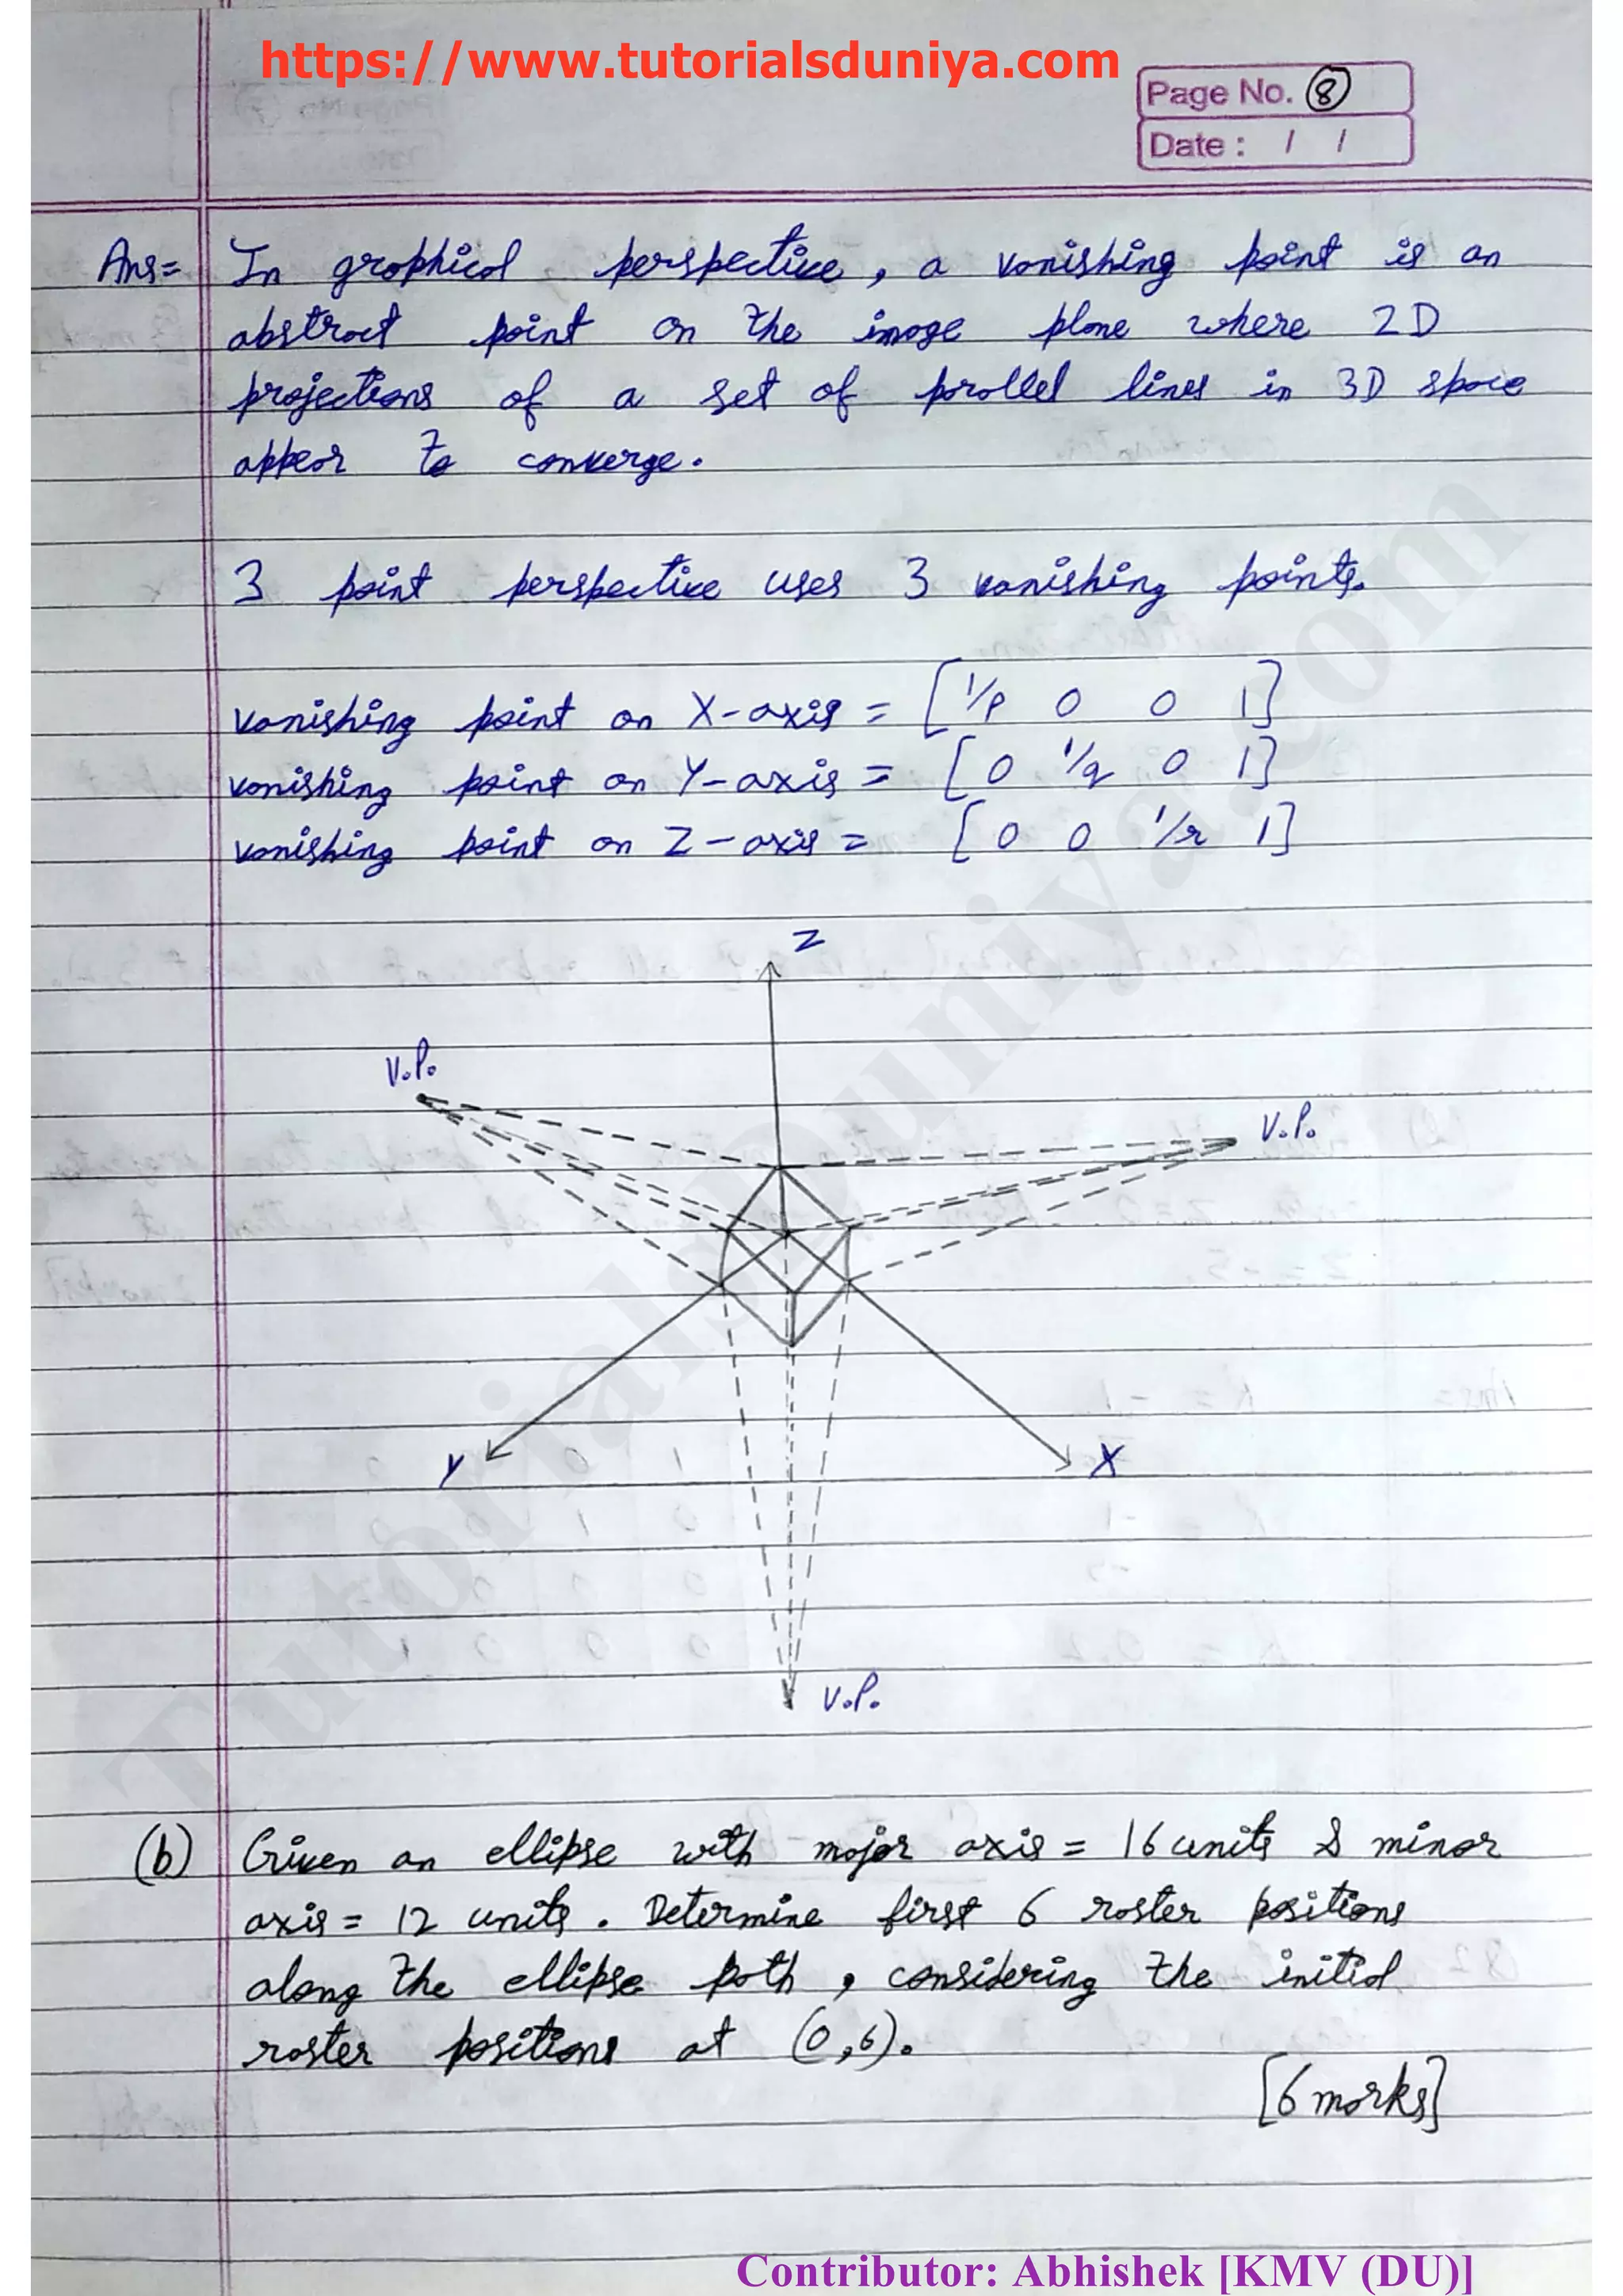 https://www.tutorialsduniya.com
Page No. 8
Date : / /
Ans= In graphical perspective, a vanishing point is an
abstract point on the image plane where 2D
projections of a set of parallel lines in 3D space
appear to converge.
3 point perspective uses 3 vanishing points.
vanishing point on X-axis = [1/p 0 0 1]
vanishing point on Y-axis = [0 1/q 0 1]
vanishing point on Z-axis = [0 0 1/r 1]
Z
V.P.
V.P.
Y
X
V.P.
(b) Given an ellipse with major axis = 16 units & minor
axis = 12 units. Determine first 6 raster positions
along the ellipse path, considering the initial
raster positions at (0,6).
[6 marks]
TutorialsDuniya.com
Contributor: Abhishek [KMV (DU)]